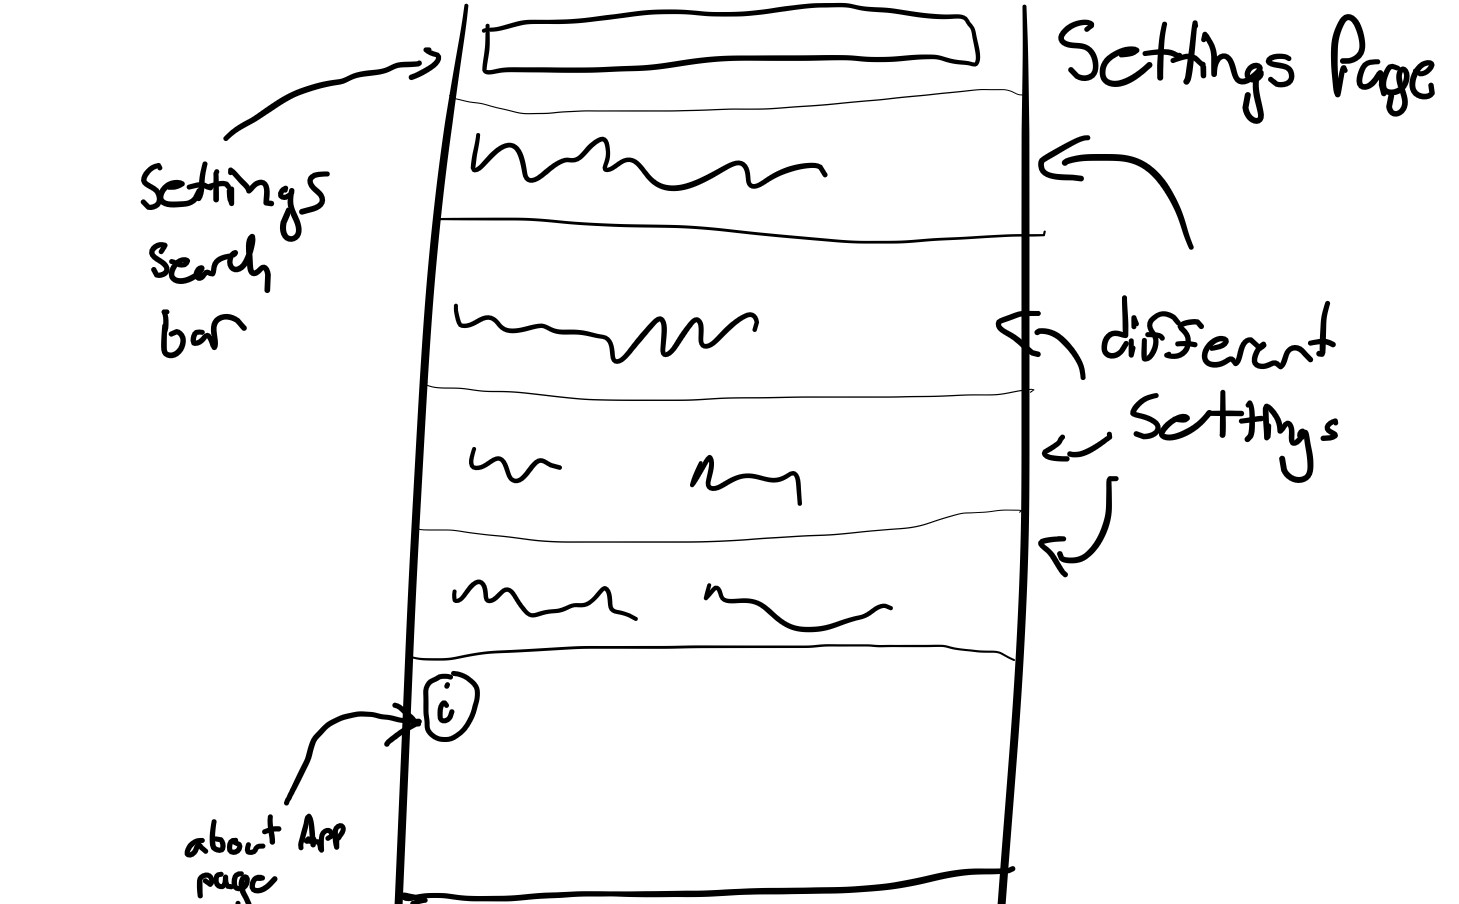 Settings Page
Settings
search
bar
different
Settings
i
about App
page